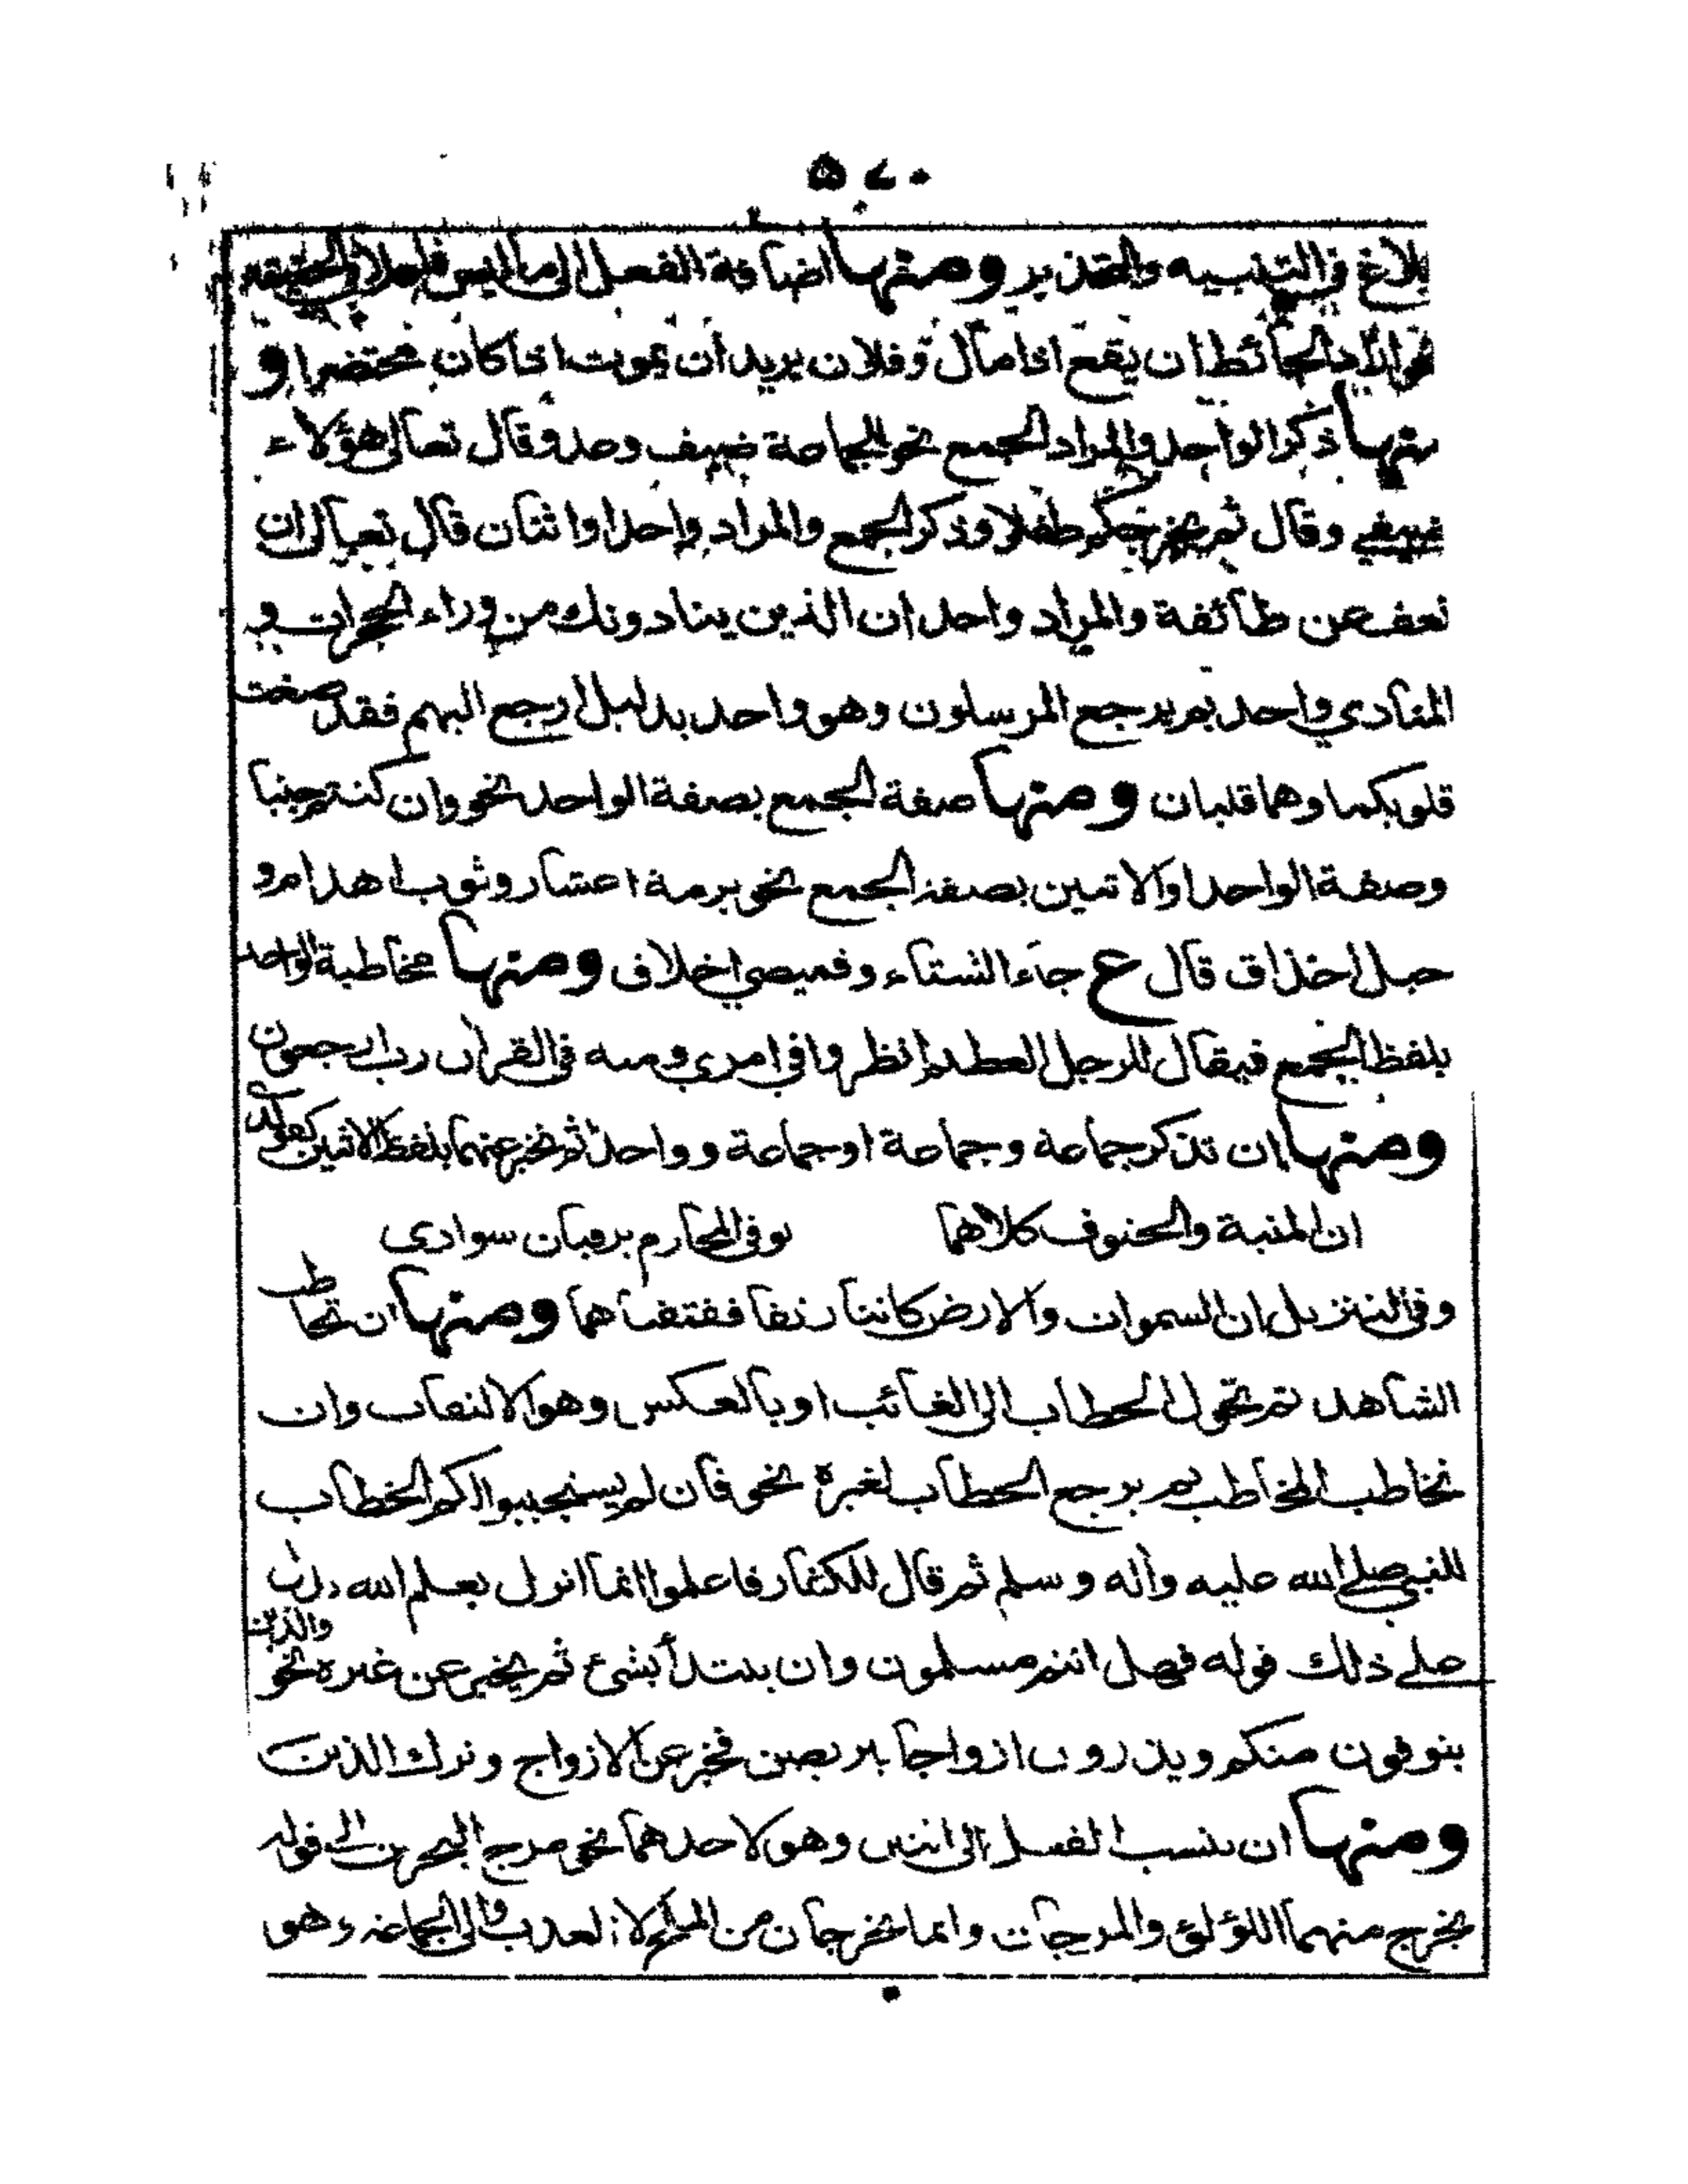 ٥٧٠
بلاغ فى التنبيه والتحذير ومنها اضافة الفعل الى ما ليس فاعلا فى الحقيقة
نحو اراد الحائط ان يقع اذا مال وفلان يريد ان يموت اذا كان محتضرا و
منها ذكر الواحد والمراد الجمع نحو للجماعة ضيف وعدو قال تعالى هؤلاء
ضيفي وقال ثم يخرجكم طفلا وذكر الجمع والمراد واحدا واثنان قال تعالى ان
نعف عن طائفة والمراد واحد ان الذين ينادونك من وراء الحجرات و
المنادي واحد بم يرجع المرسلون وهو واحد بدليل ارجع اليهم فقد صغت
قلوبكما وهما قلبان ومنها صفة الجمع بصفة الواحد نحو وان كنتم جنبا
وصفة الواحد او الاثنين بصفة الجمع نحو برمة اعشار وثوب اهدام و
حبل احذاق قال ع جاء الشتاء وقميصي اخلاق ومنها مخاطبة الواحد
بلفظ الجمع فيقال للرجل العظيم انظروا في امري ومنه فى القرآن رب ارجعون
ومنها ان تذكر جماعة وجماعة او جماعة وواحدا ثم تخبر عنهما بلفظ الاثنين كقوله
ان المنية والحتوف كلاهما يوفى المحارم يرقبان سوادى
وفى التنزيل ان السموات والارض كانتا رتقا ففتقناهما ومنها ان تخاطب
الشاهد ثم تحول الخطاب الى الغائب او بالعكس وهو الالتفات وان
تخاطب المخاطب ثم يرجع الخطاب لغيره نحو فان لم يستجيبوا لكم الخطاب
للنبي صلے الله عليه وآله وسلم ثم قال للكفار فاعلموا انما انزل بعلم الله دل
علے ذلك قوله فهل انتم مسلمون وان يبتدأ بشئ ثم يخبر عن غيره نحو والذين
يتوفون منكم ويذرون ازواجا يتربصن فخبر عن الازواج وترك الذين
ومنها ان ينسب الفعل الى اثنين وهو لاحدهما نحو مرج البحرين الى قوله
يخرج منهما اللؤلؤ والمرجان وانما يخرجان من الملح لا العذب والى الجماعة وهو